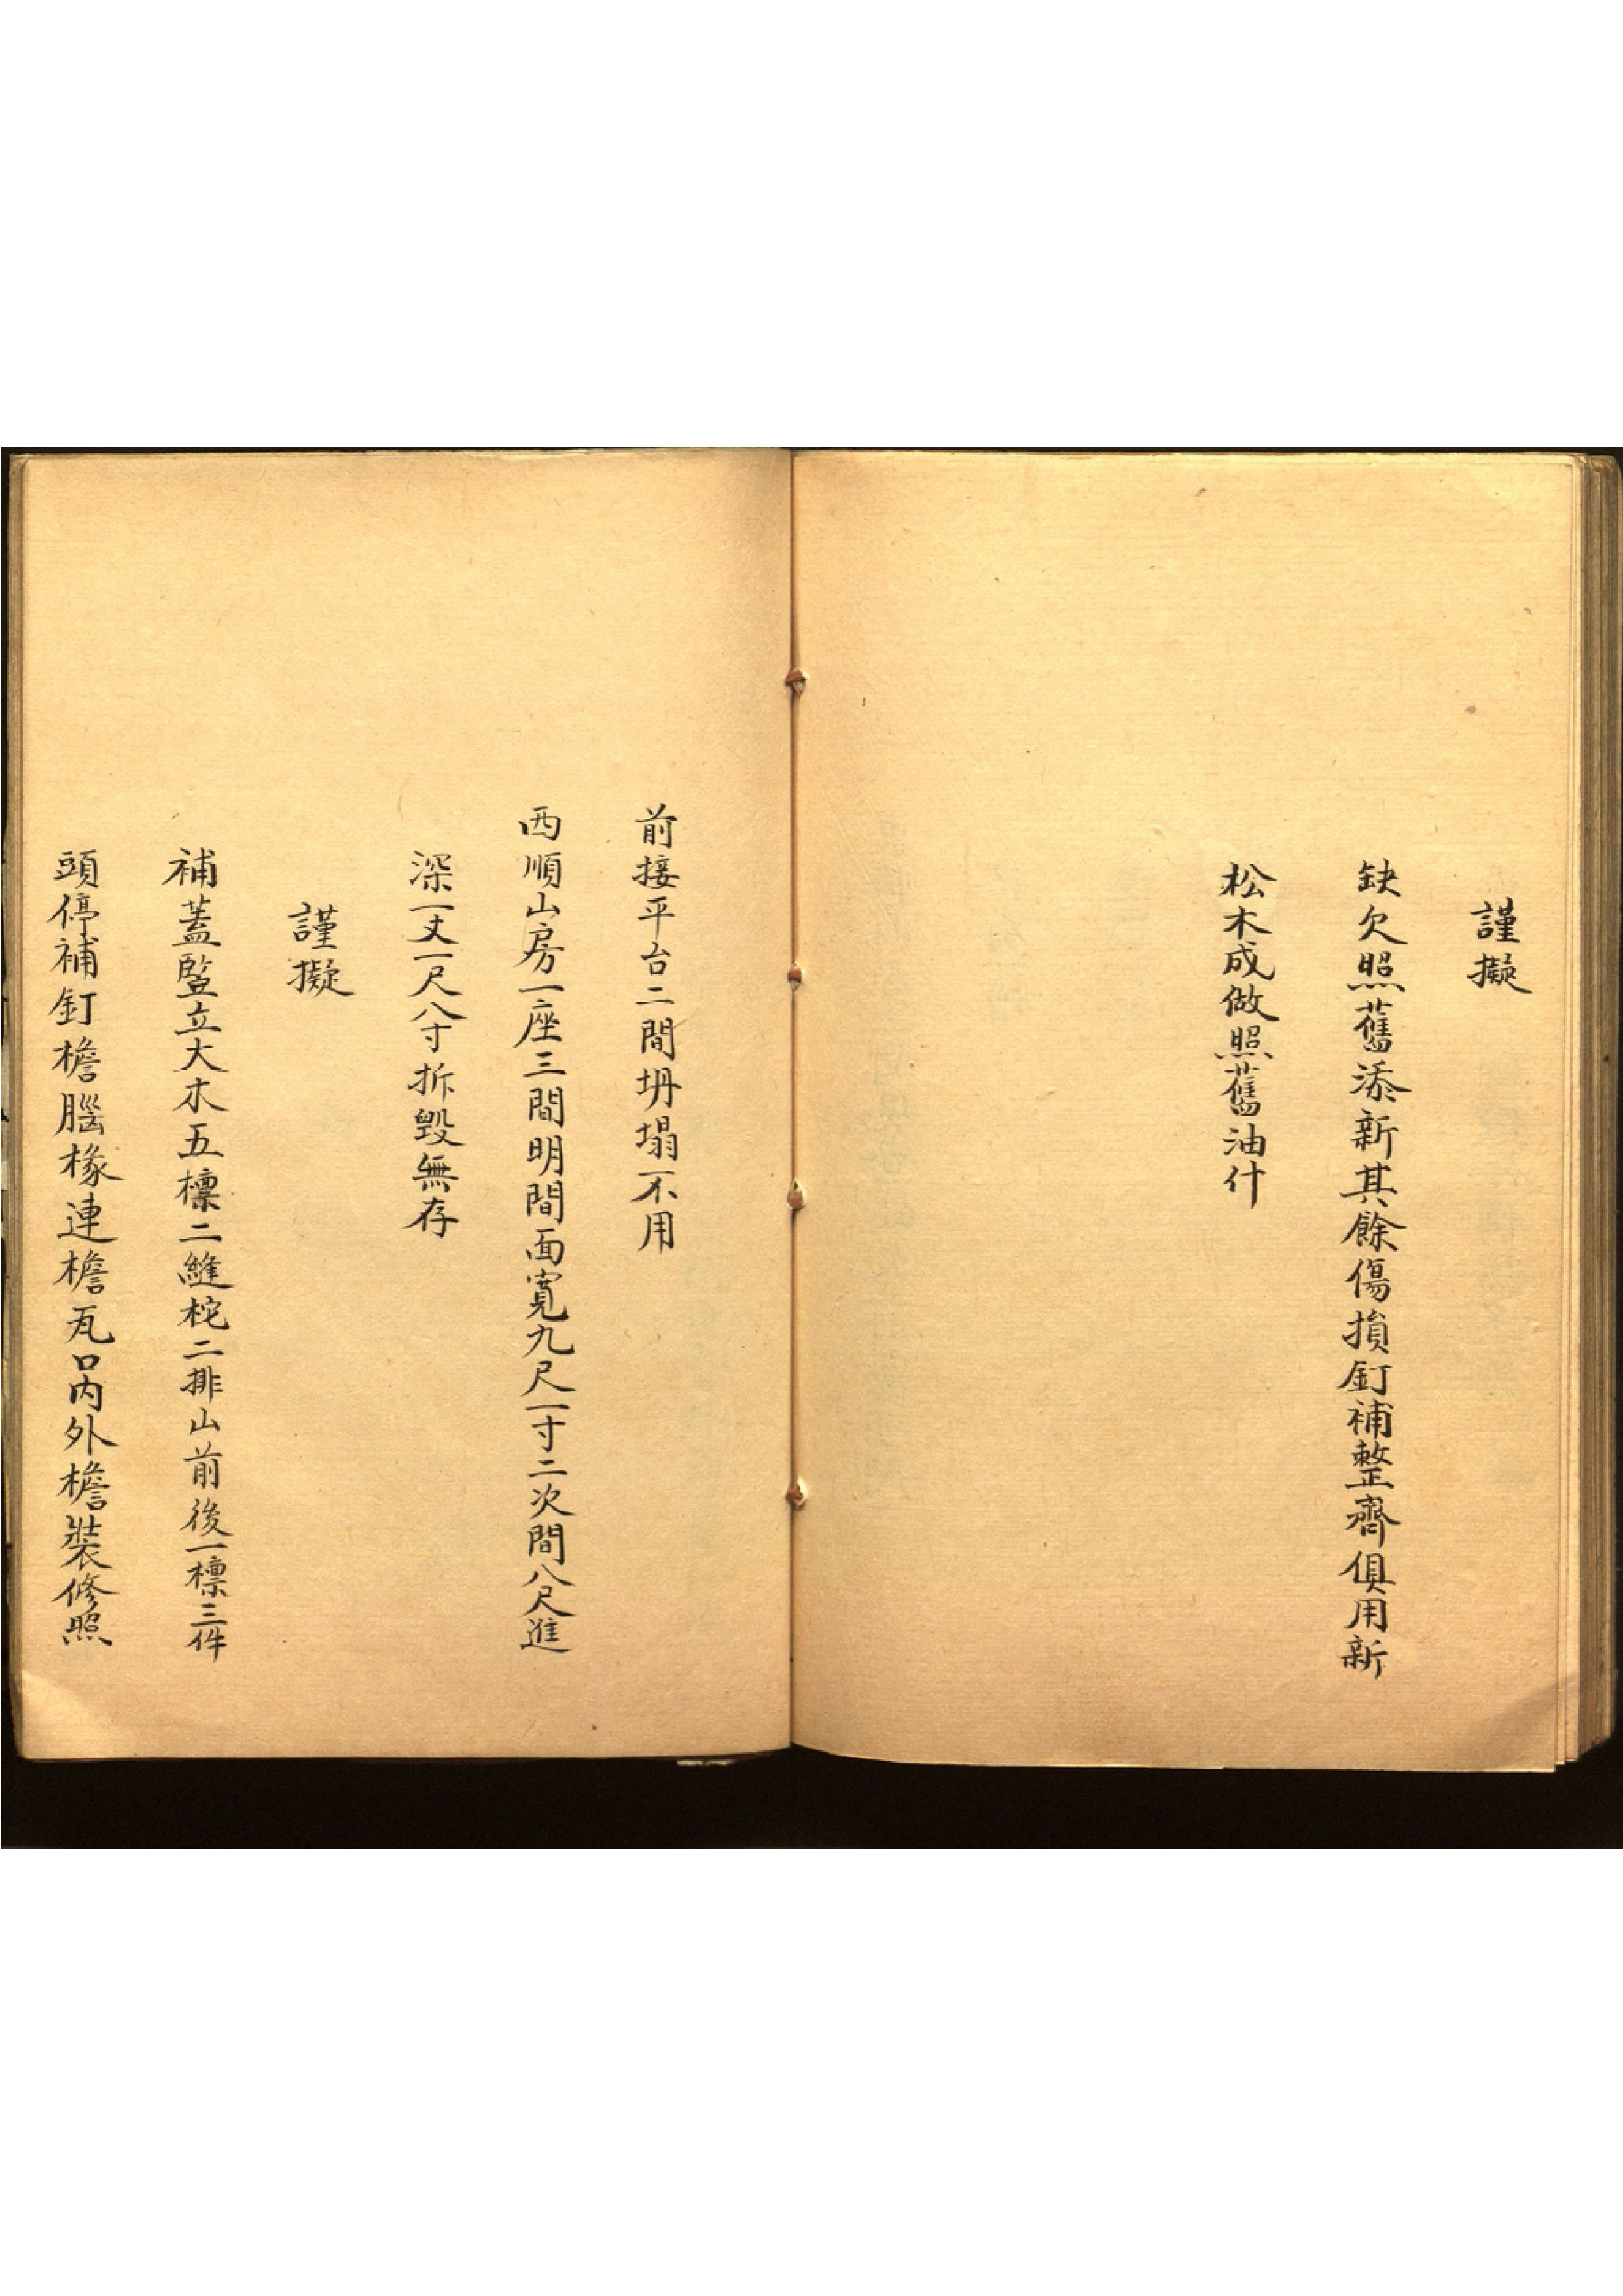 謹擬
缺欠照舊添新其餘傷損釘補整齊俱用新
松木成做照舊油什
前接平台二間坍塌不用
西順山房一座三間明間面寬九尺一寸二次間八尺進
深一丈一尺八寸拆毀無存
謹擬
補蓋竪立大木五檩二縫柁二排山前後一檩三件
頭停補釘檐腦椽連檐瓦口內外檐裝修照